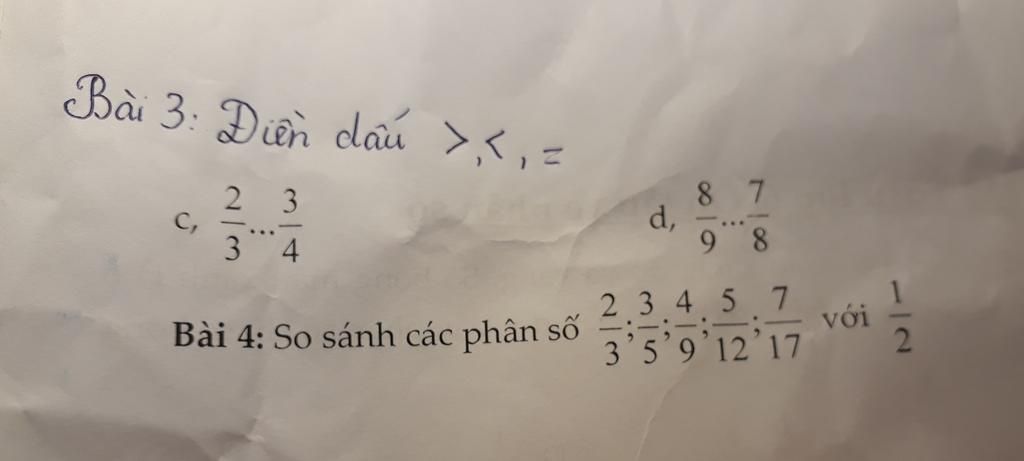 Bài 3: Điền dấu >, <, =
c, 2/3...3/4 d, 8/9...7/8
Bài 4: So sánh các phân số 2/3; 3/5; 4/9; 5/12; 7/17 với 1/2